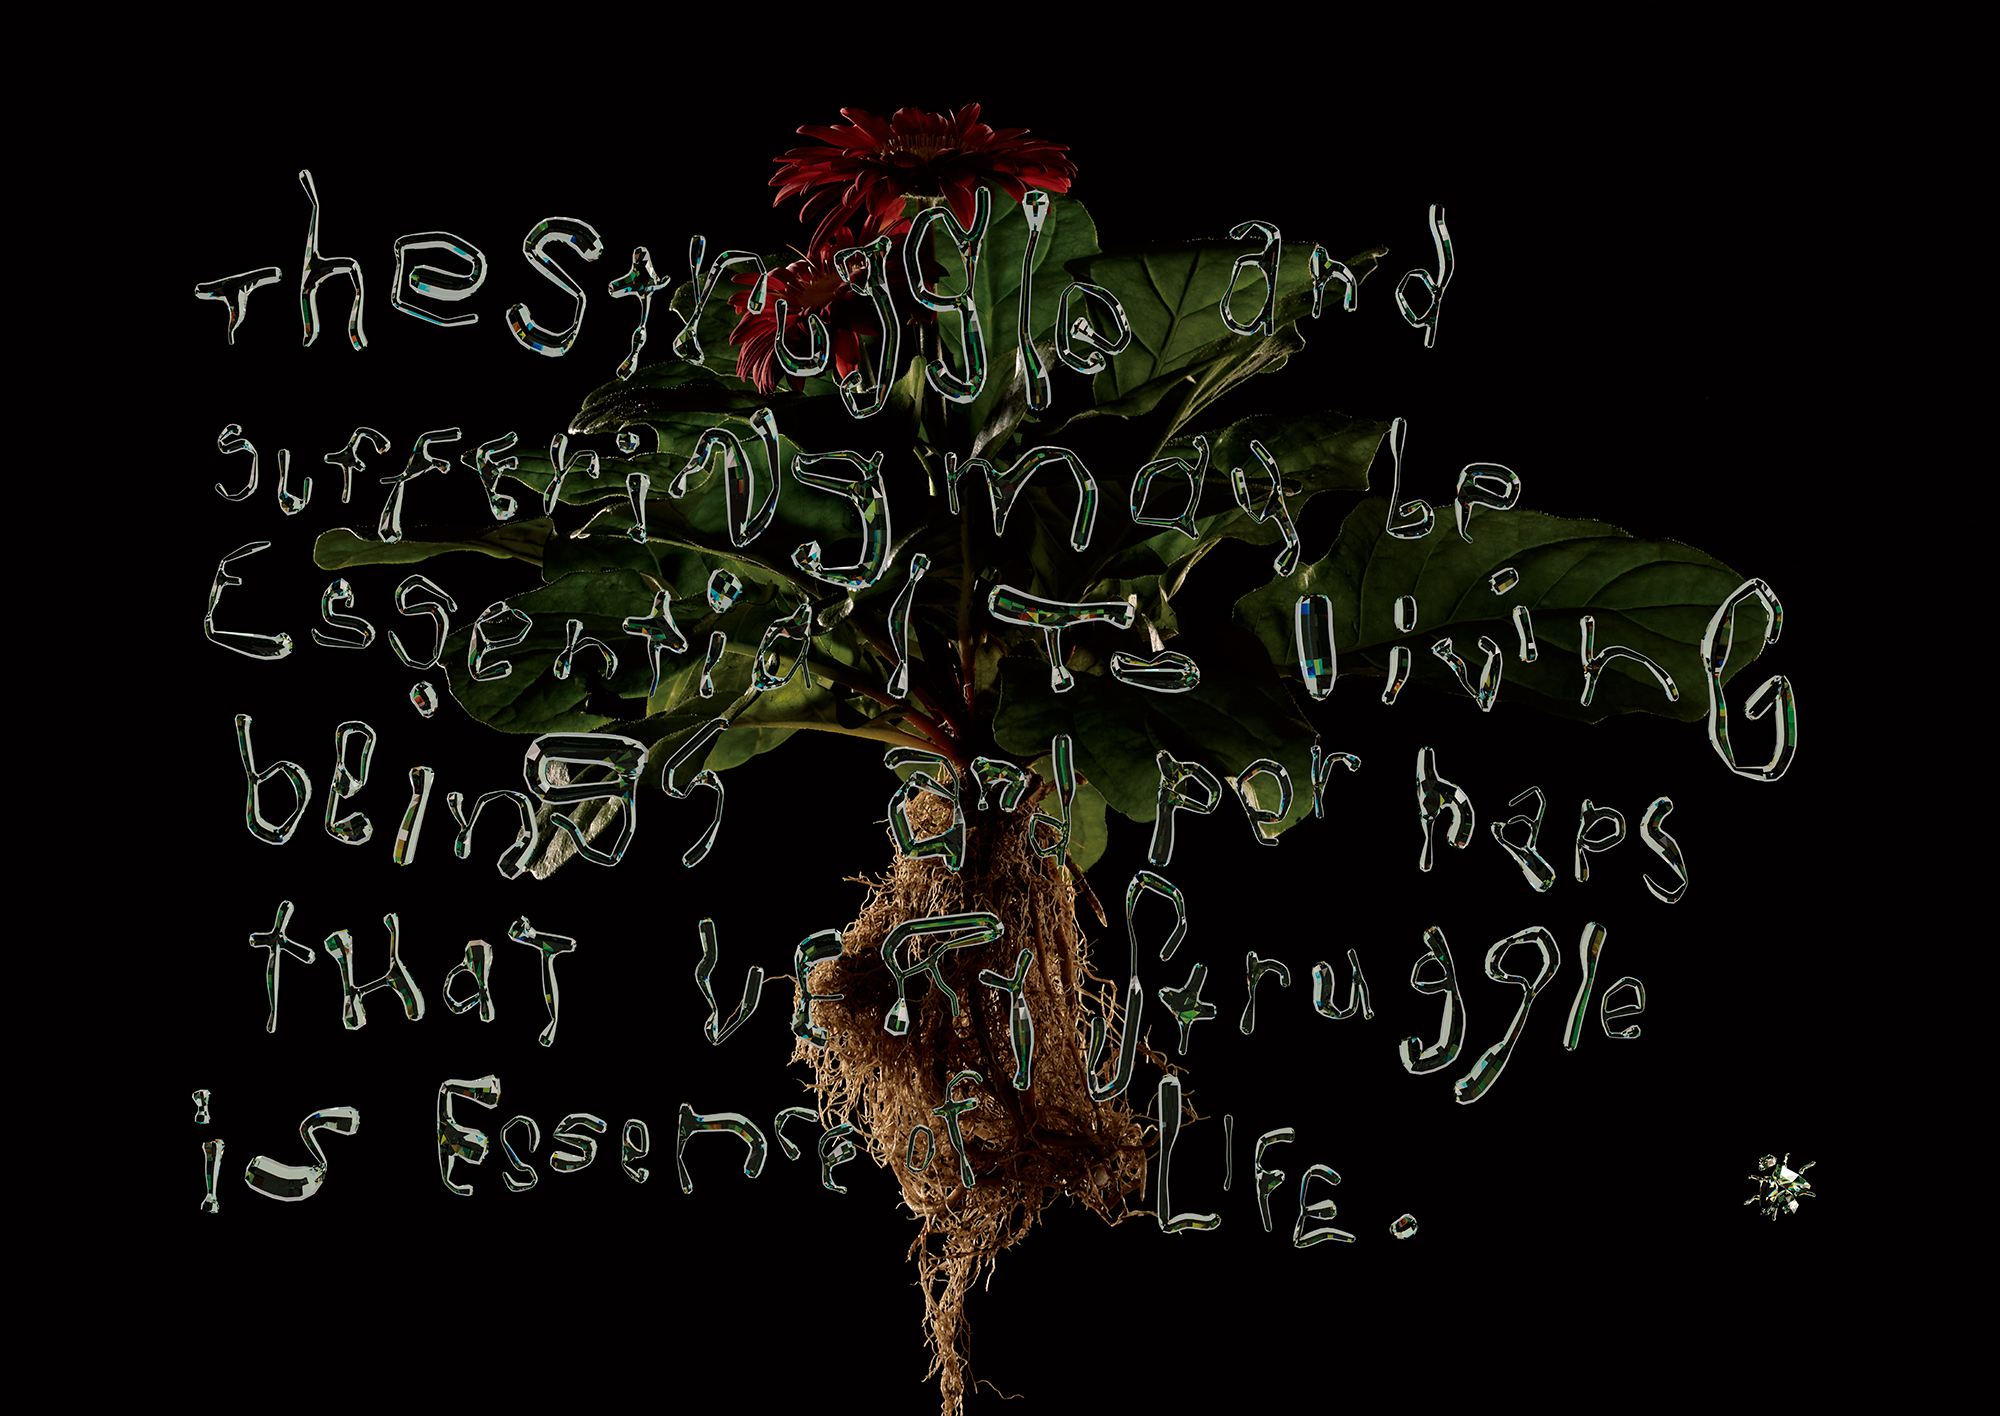 The struggle and
suFFERiNg may be
Essential To livinG
beings and perhaps
tHaT very struggle
is Essence of LiFE.